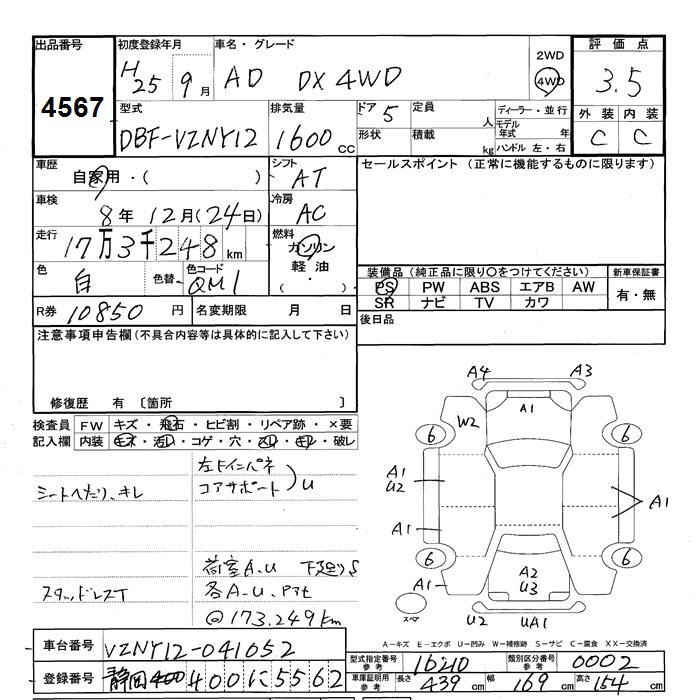 出品番号 初度登録年月 車名・グレード 2WD 評価点
4567 H25 9月 AD DX 4WD 4WD 3.5
型式 排気量 ドア 5 定員 人 ディーラー・並行 外装 内装
DBF-VZNY12 1600 CC 形状 積載 kg モデル年式 年 ハンドル 左・右 C C
車歴 シフト セールスポイント (正常に機能するものに限ります)
自家用・( ) AT
車検 冷房
8年 12月(24日) AC
走行 燃料
17万3千248km ガソリン
色 色替 色コード 軽油 装備品 (純正品に限り○をつけてください) 新車保証書
白 QM1 ・( ) PS PW ABS エアB AW 有・無
SR ナビ TV カワ
R券 10850 円 名変期限 月 日 後日品
注意事項申告欄 (不具合内容等は具体的に記入して下さい)
修復歴 有 〔箇所 〕
検査員 FW キズ・飛石・ヒビ割・リペア跡・×要
記入欄 内装 キズ・汚レ・コゲ・穴・スレ・キレ・破レ
シートヘたり、キレ
左Fインパネ
コアサポート)U
荷室A.U
スタッドレスT
各A-U.
@173.249km
A4 A3
W2 A1
6 6
A1
U2
A1 A1
6 6
A1 A2
U3
スペア U2 UA1
A-キズ E-エクボ U-凹み W-補修跡 S-サビ C-腐食 XX-交換済
車台番号 VZNY12-041052
型式指定番号 参考 16210 類別区分番号 参考 0002
登録番号 静岡400 400に5562
車庫証明用 参考 長さ 439cm 幅 169cm 高さ 154cm